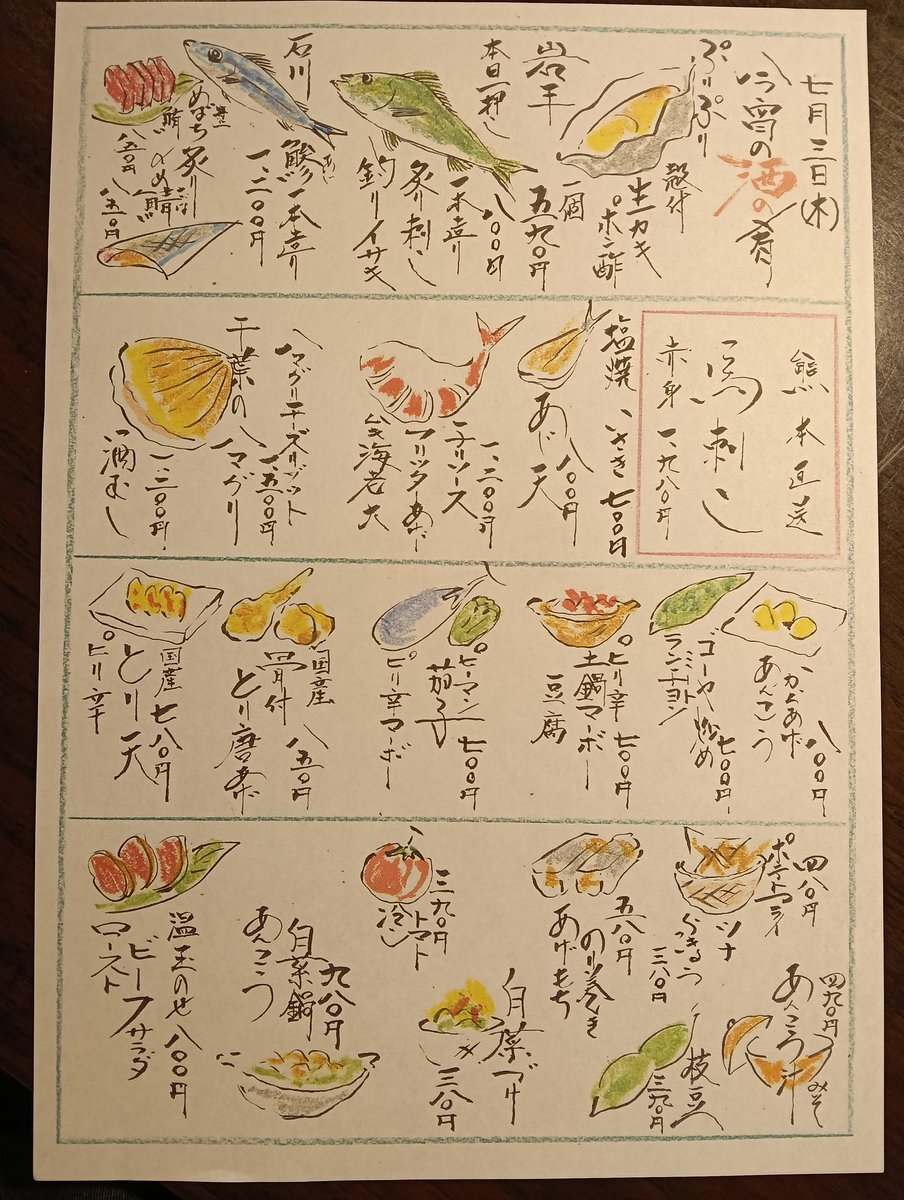 七月三日(木)
今宵の
酒の肴
ぷりぷり
殻付
生カキ
ポン酢
一個
五九〇円
岩手
本日一押し
一本造り
八〇〇円
炙り刺し
釣りイサキ
石川
鯵
一本造り
一、二〇〇円
めばち
鮪
炙り
八五〇円
〆め鯖
八五〇円
熊本直送
馬刺し
赤身 一、九八〇円
塩焼 いさき 七〇〇円
あじ天
八〇〇円
一、二〇〇円
チリソース
フリッターあげ
大海老
ハマグリチーズリゾット
一、五〇〇円
千葉の
ハマグリ
一、二〇〇円
酒むし
からあげ
あんこう
八〇〇円
ゴーヤー炒め
七〇〇円
ピリ辛
七〇〇円
土鍋マーボー
豆腐
ピーマン
七〇〇円
茄子
ピリ辛マーボー
国産
八五〇円
骨付
とり唐あげ
国産
七八〇円
とり天
ピリ辛
四八〇円
ポテトフライ
四九〇円
あんこう汁
みそ
ツナ
三八〇円
枝豆
三九〇円
五八〇円
のり巻き
あげもち
三九〇円
トマト
冷し
白菜づけ
三八〇円
九八〇円
白菜鍋
あんこう
温玉のせ
八〇〇円
ビーフサラダ
ロースト